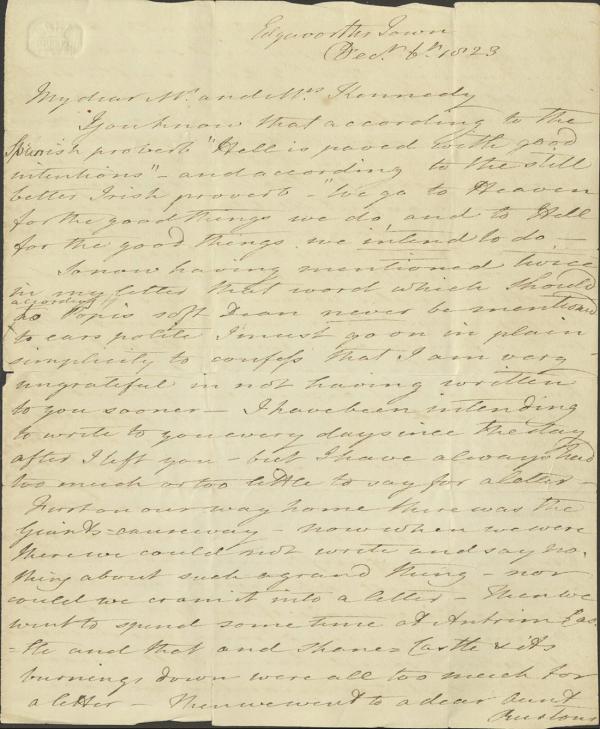 Edgeworths Town
Decr. 6th. 1823
My dear Mr. and Mrs. Kennedy
You know that according to the
Spanish proverb "Hell is paved with good
intentions" - and according to the still
better Irish proverb - "We go to Heaven
for the good things we do, and to Hell
for the good things we intend to do. -
So now having mentioned twice
in my letter that word which should
according
to Popis soft Dean never be mentioned
to ears polite I must go on in plain
simplicity to confess that I am very
ungrateful in not having written
to you sooner - I have been intending
to write to you every day since the day
after I left you - but I have always had
too much or too little to say for a letter -
First on our way home there was the
Giants=causeway - now when we were
there we could not write and say no-
thing about such a grand thing - nor
could we cram it into a letter - Then we
went to spend some time at Antrim Cas-
=tle and that and Shane=Castle & its
burnings down were all too much for
a letter - Then we went to a dear Aunt
Ruxtons